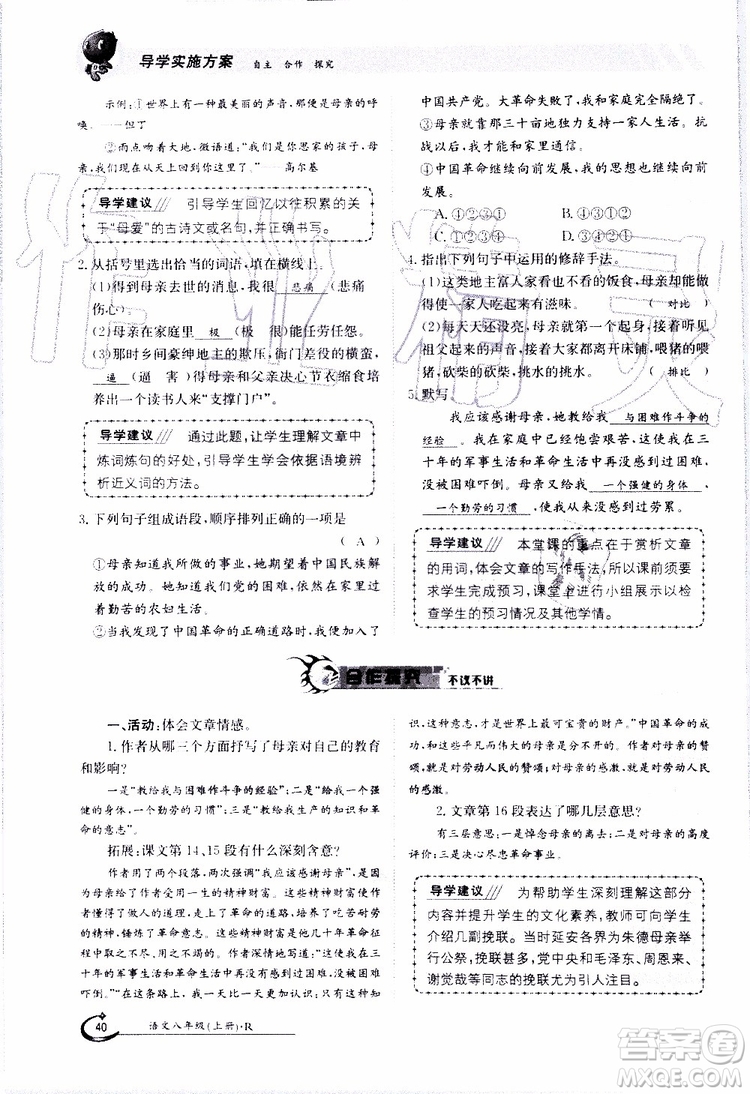 导学实施方案 自主 合作 探究
示例:①世界上有一种最美丽的声音,那便是母亲的呼
唤。——但丁
②雨点吻着大地,微语道:“我们是你思家的孩子,母
亲,我们现在从天上回到你这里了。”——高尔基
导学建议 引导学生回忆以往积累的关
于“母爱”的古诗文或名句,并正确书写。
2. 从括号里选出恰当的词语,填在横线上。
(1)得到母亲去世的消息,我很 悲痛 (悲痛
伤心)。
(2)母亲在家庭里 极 (极 很)能任劳任怨。
(3)那时乡间豪绅地主的欺压,衙门差役的横蛮,
逼 (逼 害)得母亲和父亲决心节衣缩食培
养出一个读书人来“支撑门户”。
导学建议 通过此题,让学生理解文章中
炼词炼句的好处,引导学生学会依据语境辨
析近义词的方法。
3. 下列句子组成语段,顺序排列正确的一项是
( A )
①母亲知道我所做的事业,她期望着中国民族解
放的成功。她知道我们党的困难,依然在家里过
着勤苦的农妇生活。
②当我发现了中国革命的正确道路时,我便加入了
中国共产党。大革命失败了,我和家庭完全隔绝了。
③母亲就靠那三十亩地独力支持一家人生活。抗
战以后,我才和家里通信。
④中国革命继续向前发展,我的思想也继续向前
发展。
A. ④②③① B. ①④②③
C. ②③④① D. ④①②③
4. 指出下列句子中运用的修辞手法。
(1)这类地主富人家看也不看的饭食,母亲却能做
得使一家人吃起来有滋味。 ( 对比 )
(2)每天天还没亮,母亲就第一个起身,接着听见
祖父起来的声音,接着大家都离开床铺,喂猪的喂
猪,砍柴的砍柴,挑水的挑水。 ( 排比 )
5. 默写
我应该感谢母亲,她教给我 与困难作斗争的
经验 。我在家庭中已经饱尝艰苦,这使我在三
十年的军事生活和革命生活中再没感到过困难,
没被困难吓倒。母亲又给我 一个强健的身体 ,
一个勤劳的习惯 ,使我从来没感到过劳累。
导学建议 本堂课的重点在于赏析文章
的用词,体会文章的写作手法,所以课前须要
求学生完成预习,课堂上进行小组展示以及
检查学生的预习情况及其他学情。
合作探究 不议不讲
一、活动:体会文章情感。
1. 作者从哪三个方面抒写了母亲对自己的教育
和影响?
一是“教给我与困难作斗争的经验”;二是“给我一个强
健的身体,一个勤劳的习惯”;三是“教给我生产的知识和革
命的意志”。
拓展:课文第 14、15 段有什么深刻含意?
作者用了两个段落,两次写“我应该感谢母亲”,总结出
母亲教给作者受用一生的精神财富。这些精神财富使作者
走上了革命的道路,培养了作者在革命征程中吃苦耐劳的
精神,锤炼了革命的意志。作者深情地写道:“母亲教给我
与困难作斗争的经验。”这种经验让作者几十年革命生涯中
取之不尽,用之不竭。作者感慨地写道:“这使我在三
十年的军事生活和革命生活中再没感到过困难,没被困难
吓倒。”“在这条路上,我一天比一天更加认识:只有这种知
识,这种意志,才是世界上最可宝贵的财产。”中国革命的成
功,和这些平凡而伟大的母亲是分不开的。作者对母亲的赞
颂,是对劳动人民的赞颂;作者对母亲的感激,是对劳动人民的
感激。
2. 文章第 16 段表达了哪几层意思?
有三层意思:一是悼念母亲的离去;二是对母亲的高度
评价;三是决心尽忠革命事业。
导学建议 为帮助学生深刻理解这部分
内容并提升学生的文化素养,教师可向学生
介绍几副挽联。当时延安各界为朱德母亲举
行公祭,挽联甚多,党中央和毛泽东、周恩来、
谢觉哉等敬献的挽联尤为引人注目。
40 语文八年级(上册)·R
作业精灵
答案圈
MXQE.COM